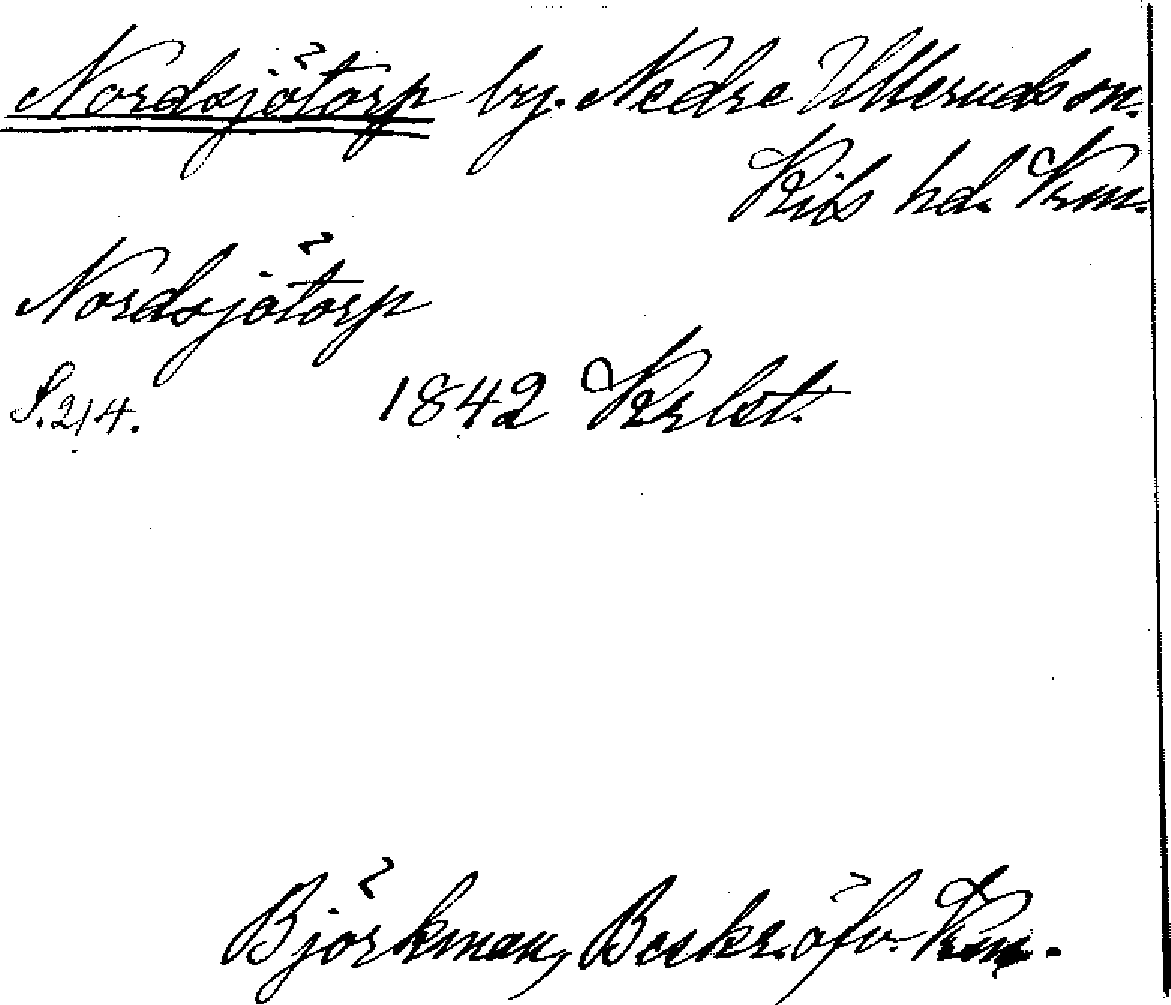 Nordsjötorp by. Nedre Ulleruds sn.
Kils hd. Vrm.
Nordsjötorp
S. 214. 1842 Krlst.
Björkman, Beskr. öfv. Vrm.